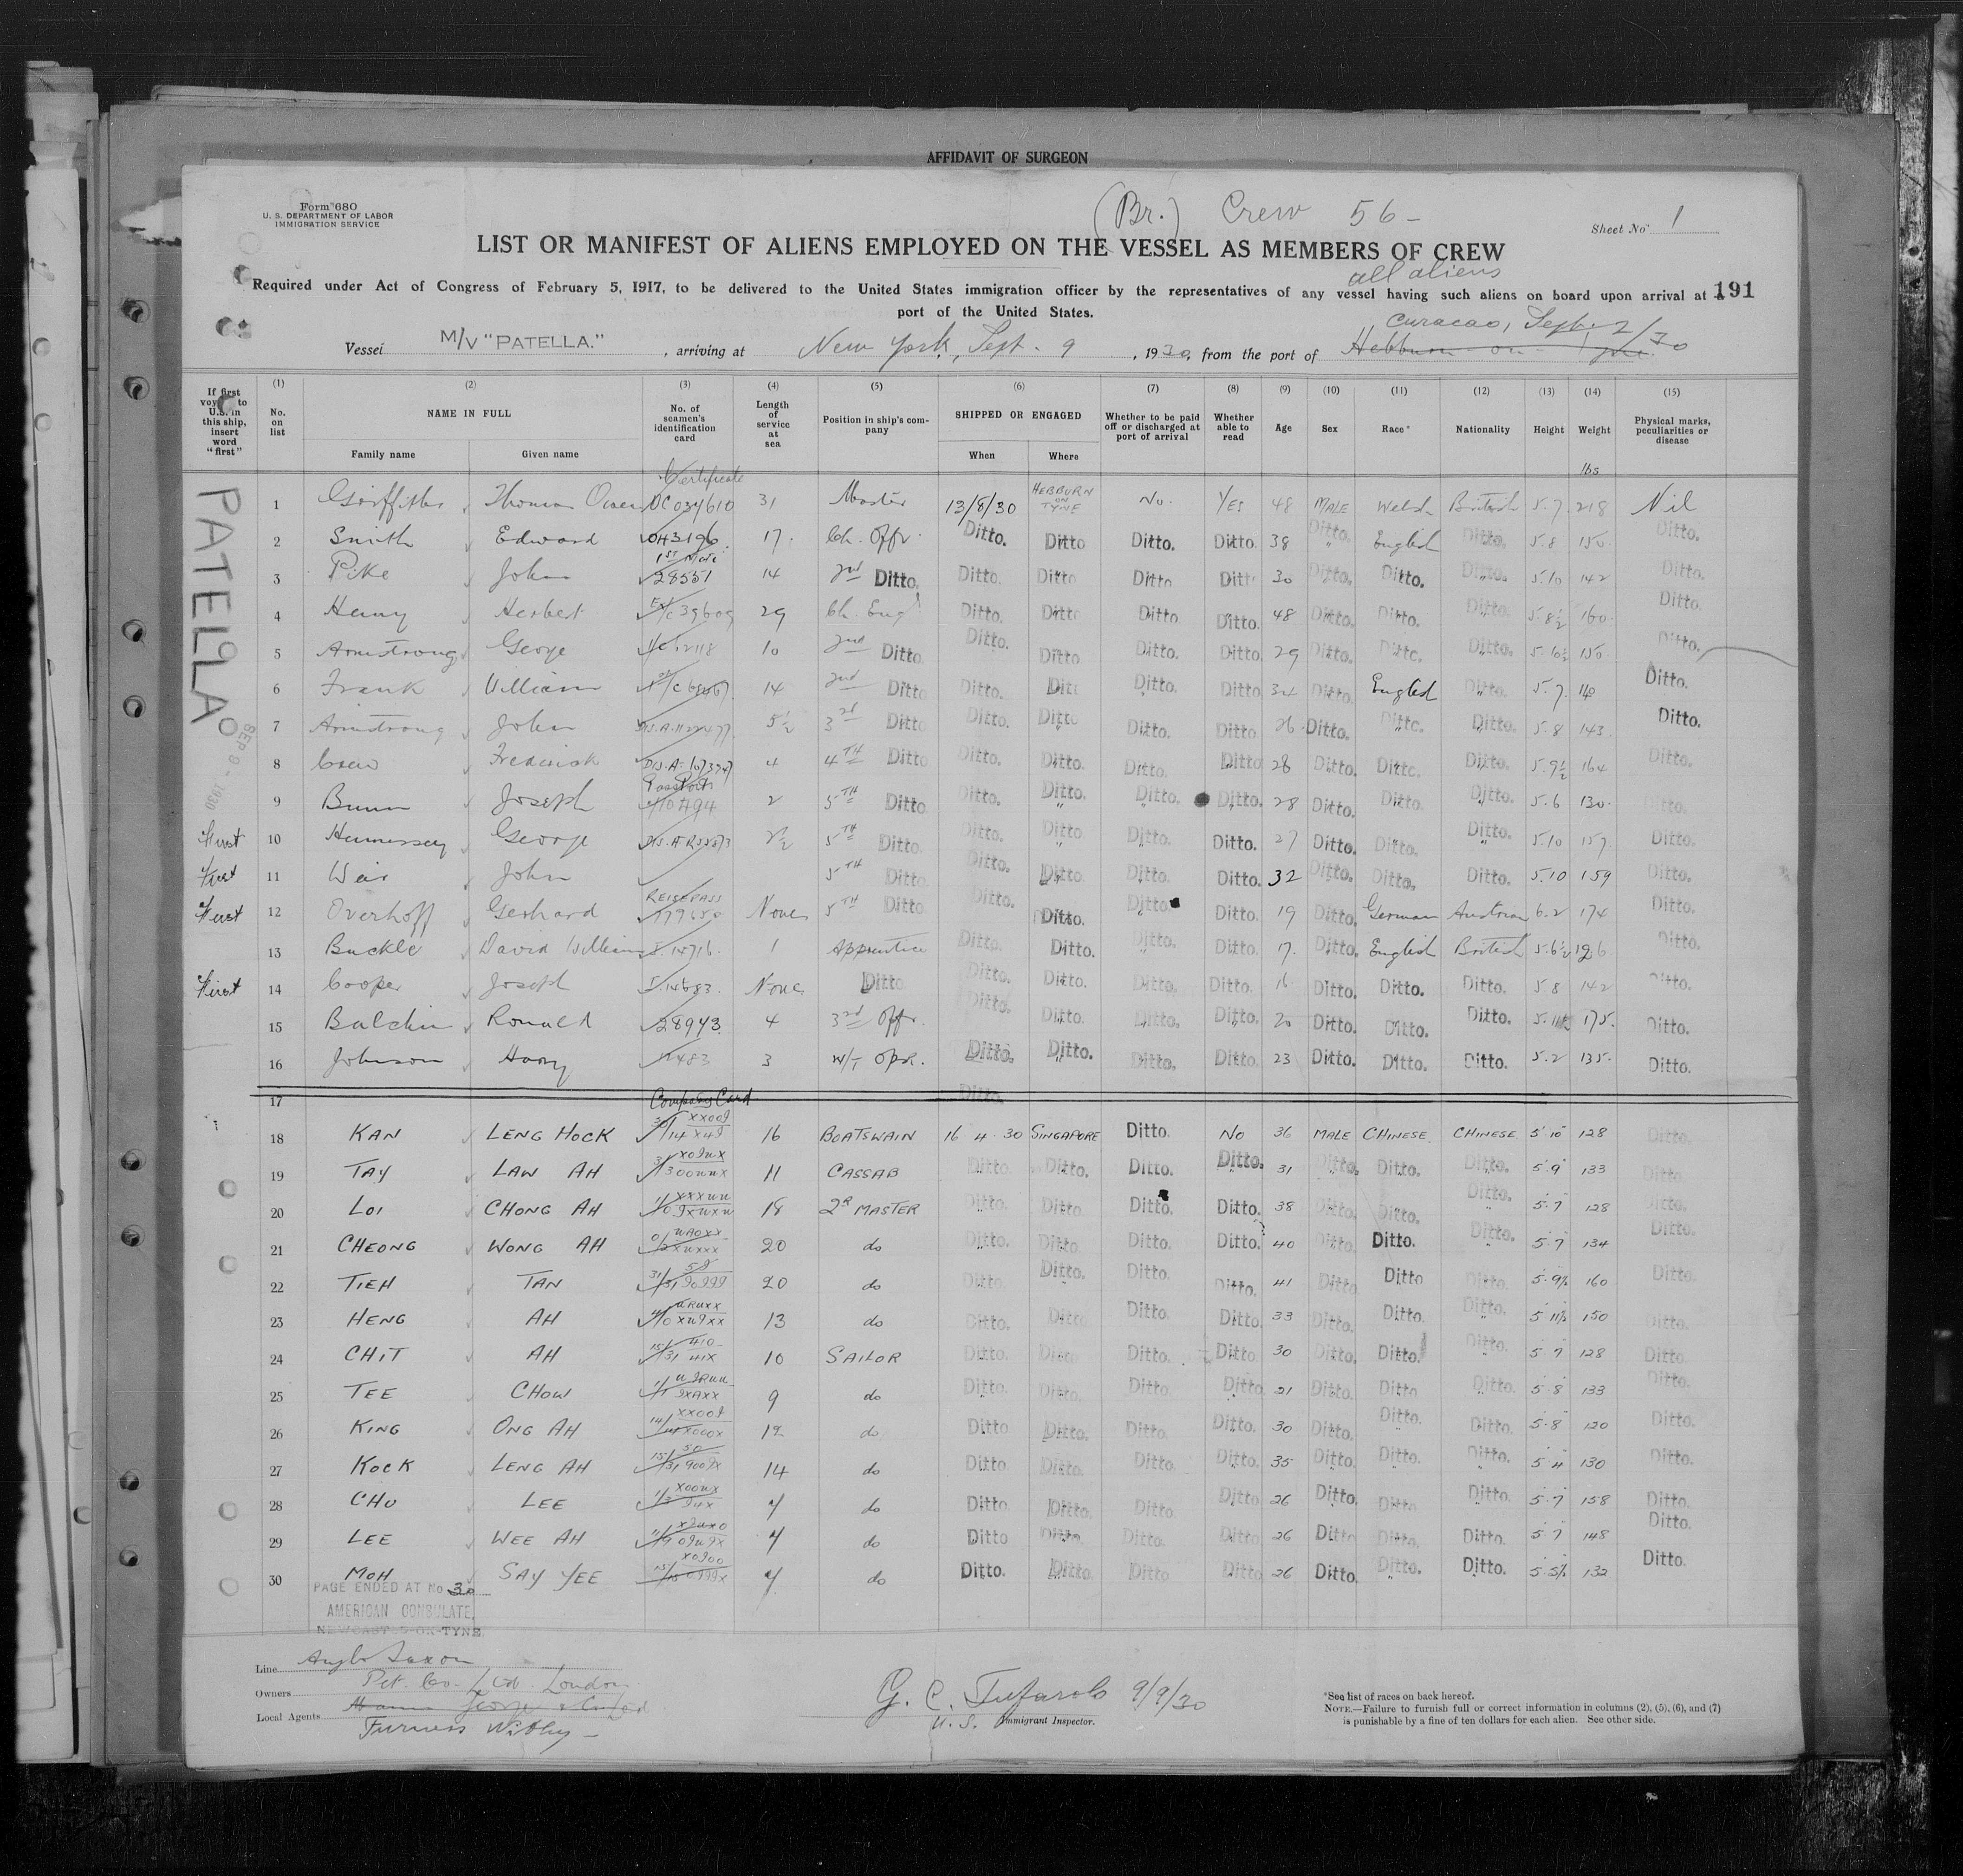 AFFIDAVIT OF SURGEON
Form 680
U. S. DEPARTMENT OF LABOR
IMMIGRATION SERVICE
(Br.) Crew 56 -
Sheet No. 1
LIST OR MANIFEST OF ALIENS EMPLOYED ON THE VESSEL AS MEMBERS OF CREW
all aliens
Required under Act of Congress of February 5, 1917, to be delivered to the United States immigration officer by the representatives of any vessel having such aliens on board upon arrival at a
191
port of the United States.
Curacao, Sept. 2/30
Vessel M/V "PATELLA." , arriving at New York, Sept. 9 , 1930, from the port of Hebburn - on - Tyne
If first voyage to U.S. in this ship, insert word "first"
(1) No. on list
(2) NAME IN FULL Family name Given name
(3) No. of seamen's identification card
(4) Length of service at sea
(5) Position in ship's company
(6) SHIPPED OR ENGAGED When Where
(7) Whether to be paid off or discharged at port of arrival
(8) Whether able to read
(9) Age
(10) Sex
(11) Race*
(12) Nationality
(13) Height
(14) Weight
(15) Physical marks, peculiarities or disease
Certificate
lbs
PATELLA
SEP 9 - 1930
1 Griffiths Thomas Owen 31 Master 13/8/30 HEBBURN ON TYNE No. YES 48 MALE Welsh British 5.7 218 Nil
2 Smith Edward 043196 17 Ch. Offr. Ditto. Ditto Ditto. Ditto. 38 Ditto. English Ditto. 5.8 150 Ditto.
1st Mate
3 Pike John 28551 14 2nd Ditto. Ditto. Ditto Ditto Ditto 30 Ditto. Ditto. Ditto. 5.10 142 Ditto.
4 Henry Herbert 39609 29 Ch. Eng. Ditto. Ditto Ditto Ditto. 48 Ditto. Ditto. Ditto. 5.8½ 160 Ditto.
5 Armstrong George 10 2nd Ditto Ditto. Ditto Ditto. Ditto 29 Ditto. Ditto. Ditto. 5.10½ 150 Ditto.
6 Frank William 14 2nd Ditto Ditto. Ditto Ditto. Ditto 34 Ditto. English Ditto. 5.7 Ditto.
7 Armstrong John 5½ 3rd Ditto Ditto. Ditto Ditto. Ditto 26 Ditto. Ditto. Ditto. 5.8 143 Ditto.
8 Frederick 4 4TH Ditto Ditto. Ditto. Ditto. Ditto 28 Ditto. Ditto. Ditto. 5.9½ 164 Ditto.
Passport
9 Joseph 2 5TH Ditto Ditto. Ditto. Ditto. Ditto. 28 Ditto. Ditto. Ditto. 5.6 130 Ditto.
First 10 Hennessey George 2½ 5TH Ditto. Ditto. Ditto. Ditto. Ditto. 27 Ditto. Ditto. Ditto. 5.10 157 Ditto.
First 11 Weir John 5TH Ditto. Ditto. Ditto. Ditto. Ditto. 32 Ditto. Ditto. Ditto. 5.10 159 Ditto.
REISEPASS
First 12 Overhoff Gerhard None 5TH Ditto Ditto. Ditto. Ditto. Ditto. 19 Ditto. German Austrian 6.2 174 Ditto.
13 Buckle David William 1 Apprentice Ditto. Ditto. Ditto. Ditto. 17 Ditto. English British 5.6½ Ditto.
First 14 Cooper Joseph None Ditto Ditto. Ditto. Ditto. Ditto. 16 Ditto. Ditto. Ditto. 5.8 142 Ditto.
15 Balchin Ronald 28943 4 3rd Offr. Ditto. Ditto. Ditto. Ditto. 20 Ditto. Ditto. Ditto. 175 Ditto.
16 Johnson Harry 3 W/T OPR. Ditto. Ditto. Ditto. Ditto. 23 Ditto. Ditto. Ditto. 5.2 135 Ditto.
17 Company Card Ditto.
18 KAN LENG HOCK 16 BOATSWAIN 16 4 30 SINGAPORE Ditto. NO 36 MALE CHINESE CHINESE 5' 10" 128 Ditto.
19 TAY LAW AH 11 CASSAB Ditto. Ditto. Ditto. Ditto. 31 Ditto. Ditto. Ditto. 5 9 133 Ditto.
20 LOI CHONG AH 18 2R MASTER Ditto. Ditto Ditto. Ditto. 38 Ditto. Ditto. Ditto. 5 7 128 Ditto.
21 CHEONG WONG AH 20 do Ditto. Ditto. Ditto. Ditto. 40 Ditto. Ditto. Ditto. 5 7 134 Ditto.
22 TIEH TAN 20 do Ditto. Ditto. Ditto. Ditto. 41 Ditto Ditto Ditto. 5 9½ 160 Ditto.
23 HENG AH 13 do Ditto. Ditto Ditto. Ditto. 33 Ditto. Ditto. Ditto. 5 11½ 150 Ditto.
24 CHIT AH 10 SAILOR Ditto. Ditto Ditto. Ditto 30 Ditto. Ditto. Ditto. 5 7 128 Ditto.
25 TEE CHOW 9 do Ditto. Ditto. Ditto. Ditto 21 Ditto. Ditto Ditto. 5 8 133 Ditto.
26 KING ONG AH 12 do Ditto Ditto. Ditto. Ditto. 30 Ditto. Ditto. Ditto. 5 8 120 Ditto.
27 KOCK LENG AH 14 do Ditto Ditto. Ditto Ditto. 35 Ditto. Ditto. Ditto. 5 4 130 Ditto.
28 CHU LEE 4 do Ditto. Ditto. Ditto. Ditto 26 Ditto. Ditto. Ditto. 5 7 158 Ditto.
29 LEE WEE AH 4 do Ditto Ditto. Ditto. Ditto 26 Ditto Ditto. Ditto. 5 7 148 Ditto.
30 MOH SAY YEE 4 do Ditto. Ditto. Ditto. Ditto 26 Ditto. Ditto. Ditto. 5 5½ 132 Ditto.
PAGE ENDED AT No. 30
AMERICAN CONSULATE,
NEWCASTLE-ON-TYNE.
Line Anglo Saxon
Owners Pet. Co. Ltd. London
Local Agents
Furness Withy -
G. C. Tufarolo 9/9/30
U. S. Immigrant Inspector.
*See list of races on back hereof.
NOTE.—Failure to furnish full or correct information in columns (2), (5), (6), and (7)
is punishable by a fine of ten dollars for each alien. See other side.